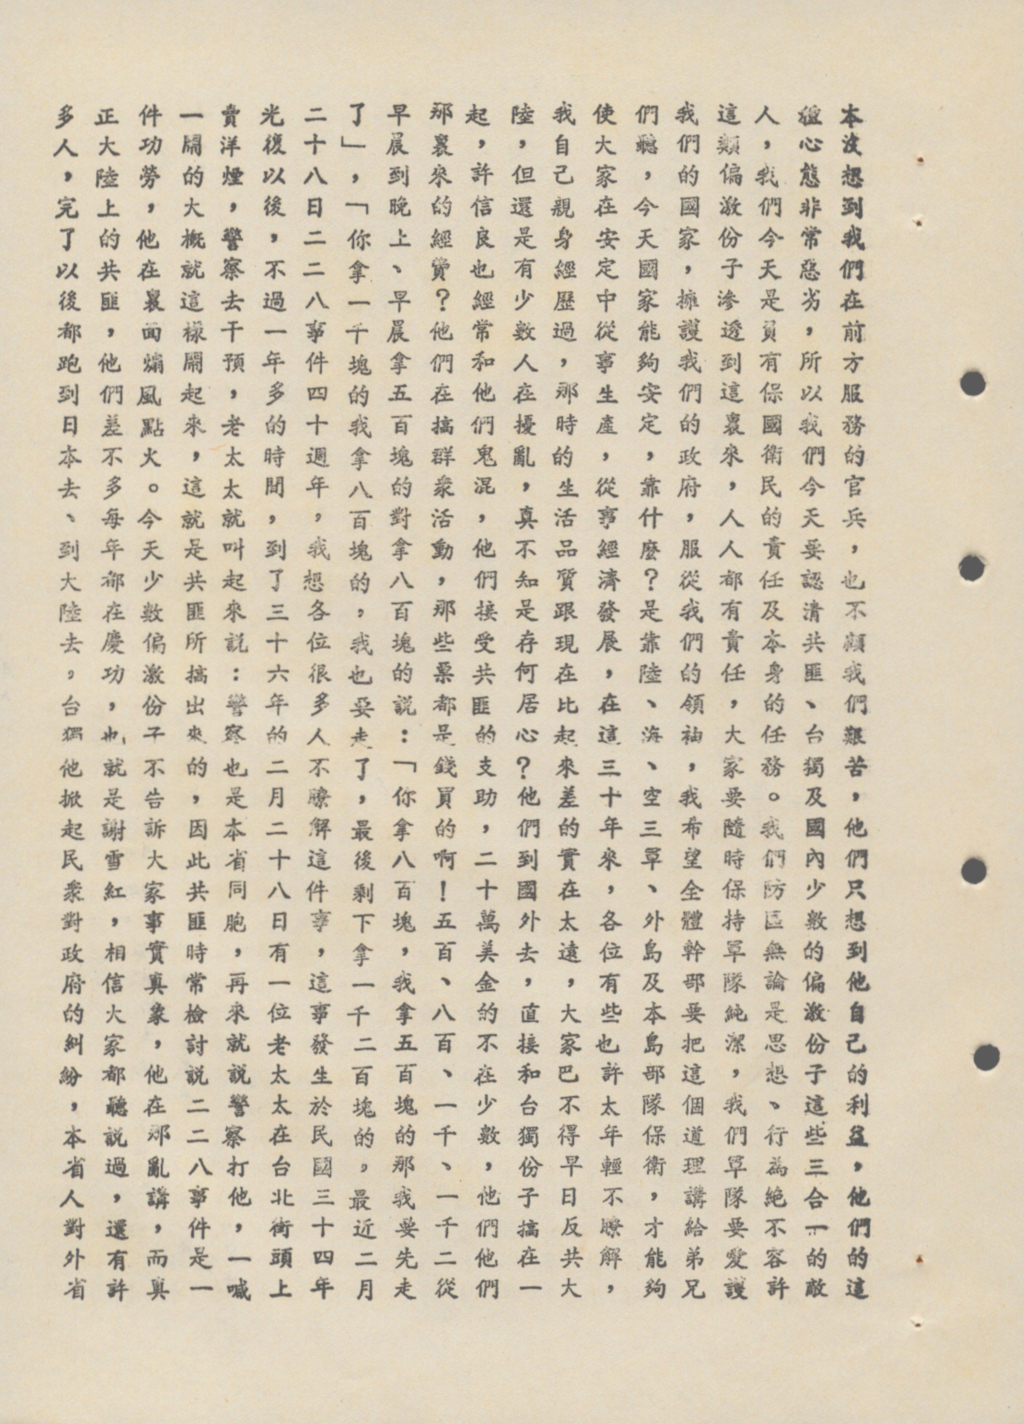 本沒想到我們在前方服務的官兵，也不顧我們艱苦，他們只想到他自己的利益，他們的這
種心態非常惡劣，所以我們今天要認清共匪、台獨及國內少數的偏激份子這些三合一的敵
人，我們今天是員有保國衛民的責任及本身的任務。我們防區無論是思想、行為絕不容許
這類偏激份子滲透到這裏來，人人都有責任，大家要隨時保持軍隊純潔，我們軍隊要愛護
我們的國家，擁護我們的政府，服從我們的領袖，我希望全體幹部要把這個道理講給弟兄
們聽，今天國家能夠安定，靠什麼？是靠陸、海、空三軍、外島及本島部隊保衛，才能夠
使大家在安定中從事生產，從事經濟發展，在這三十年來，各位有些也許太年輕不瞭解，
我自己親身經歷過，那時的生活品質跟現在比起來差的實在太遠，大家巴不得早日反共大
陸，但還是有少數人在擾亂，真不知是存何居心？他們到國外去，直接和台獨份子搞在一
起，許信良也經常和他們鬼混，他們接受共匪的支助，二十萬美金的不在少數，他們他們
那裏來的經費？他們在搞群衆活動，那些票都是錢買的啊！五百、八百、一千、一千二從
早晨到晚上、早晨拿五百塊的對拿八百塊的說：「你拿八百塊，我拿五百塊的那我要先走
了」，「你拿一千塊的我拿八百塊的，我也要走了，最後剩下拿一千二百塊的。最近二月
二十八日二二八事件四十週年，我想各位很多人不瞭解這件事，這事發生於民國三十四年
光復以後，不過一年多的時間，到了三十六年的二月二十八日有一位老太太在台北街頭上
賣洋煙，警察去干預，老太太就叫起來說：警察也是本省同胞，再來就說警察打他，一喊
一鬧的大概就這樣鬧起來，這就是共匪所搞出來的，因此共匪時常檢討說二二八事件是一
件功勞，他在裏面煽風點火。今天少數偏激份子不告訴大家事實真象，他在那亂講，而真
正大陸上的共匪，他們差不多每年都在慶功，也就是謝雪紅，相信大家都聽說過，還有許
多人，完了以後都跑到日本去、到大陸去。台獨他掀起民衆對政府的糾紛，本省人對外省